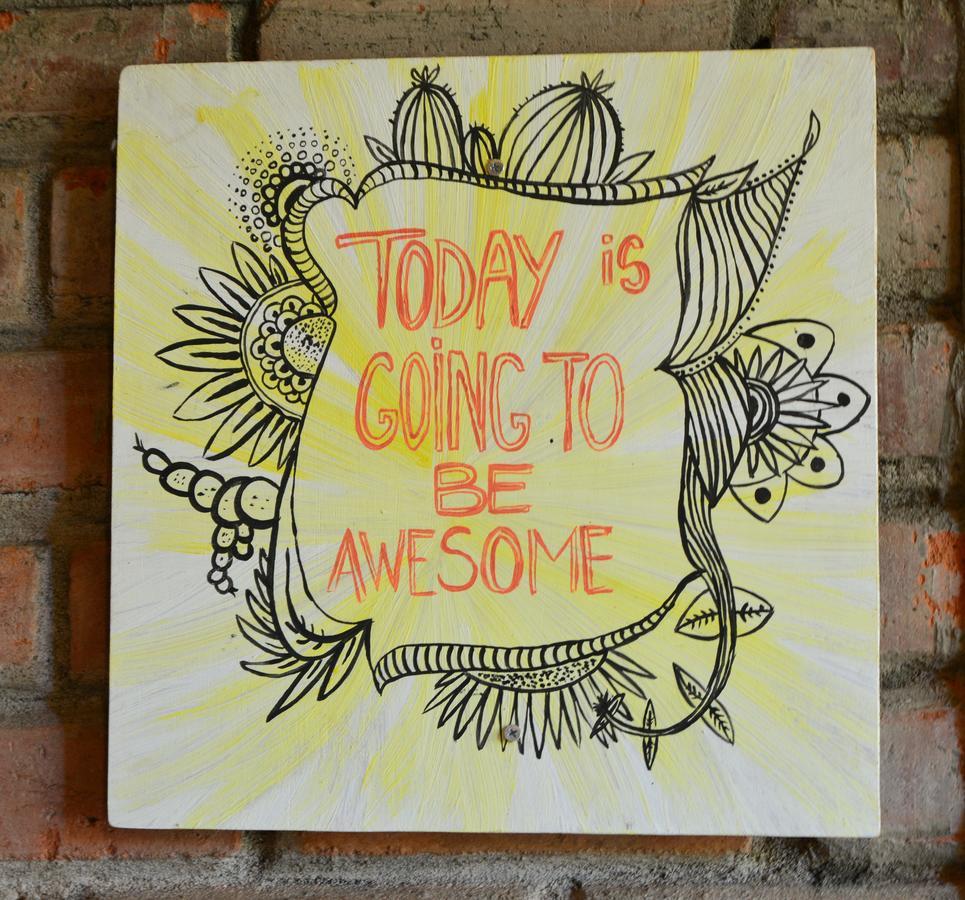 TODAY iS
GOiNG TO
BE
AWESOME